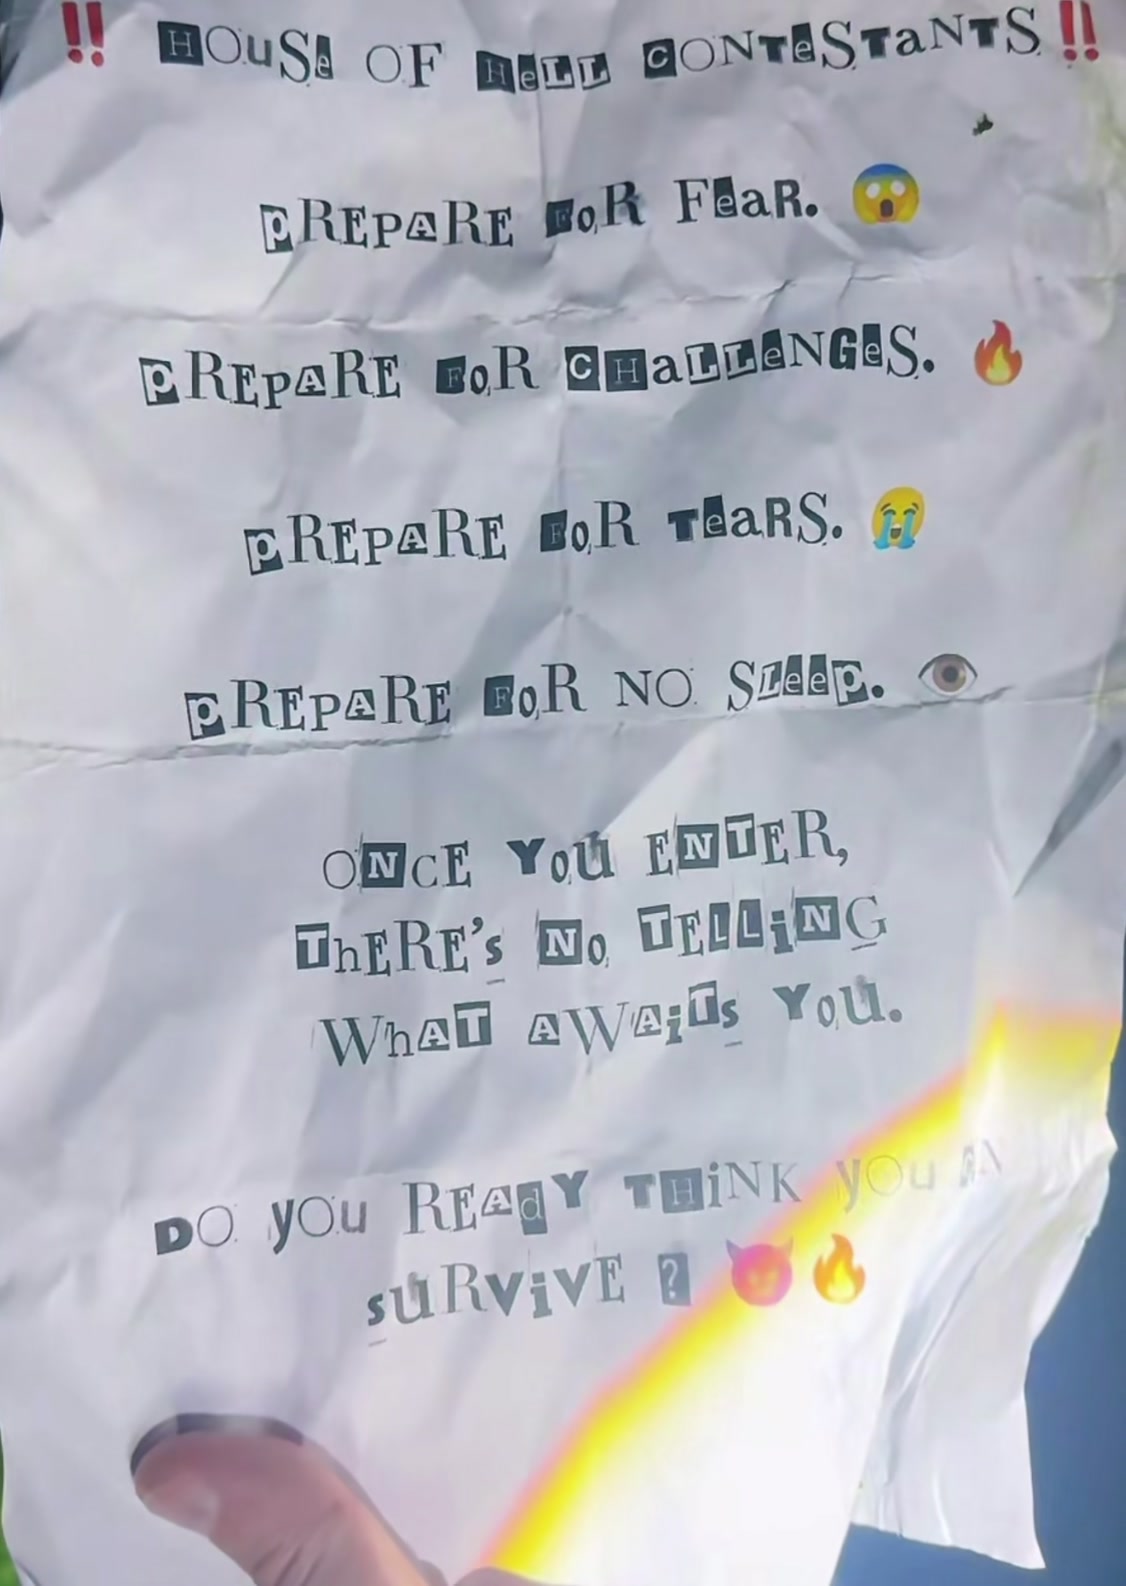 ‼️ HOUSe OF HeLL CONTeSTaNTS ‼️
pREPARE FoR FeaR. 😱
pREPARE FoR CHaLLeNGeS. 🔥
pREPARE FoR TeaRS. 😭
pREPARE FoR NO SLeep. 👁️
ONcE YoU ENTER,
ThERE's No TELLiNG
WhAT AWAiTs YoU.
DO yOu REAdY THiNK yOu
sURViVE ? 😈🔥